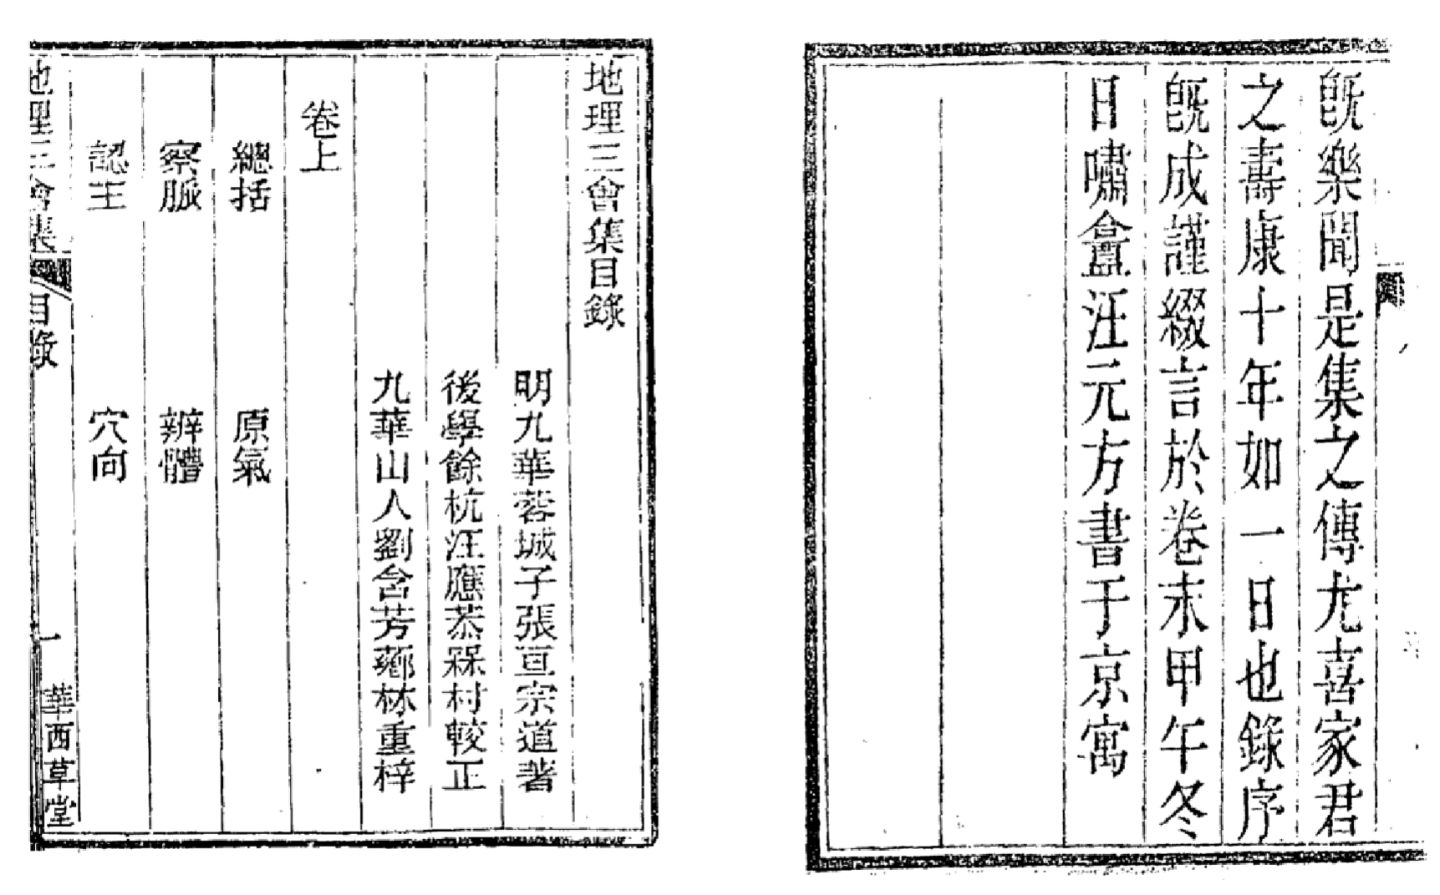 既樂聞是集之傳尤喜家君
之壽康十年如一日也錄序
既成謹綴言於卷末甲午冬
日嘯盦汪元方書于京寓
地理三會集目錄
明九華蓉城子張亘宗道著
後學餘杭汪應菾槑村較正
九華山人劉含芳薌林重梓
卷上
總括 原氣
察脈 辨體
認主 穴向
地理三會集 目錄 一 華西草堂